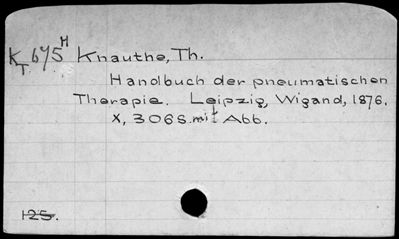 K_T 675^H Knauthe, Th.
Handbuch der pneumatischen
Therapie. Leipzig, Wigand, 1876.
X, 306 S. mit Abb.
125.